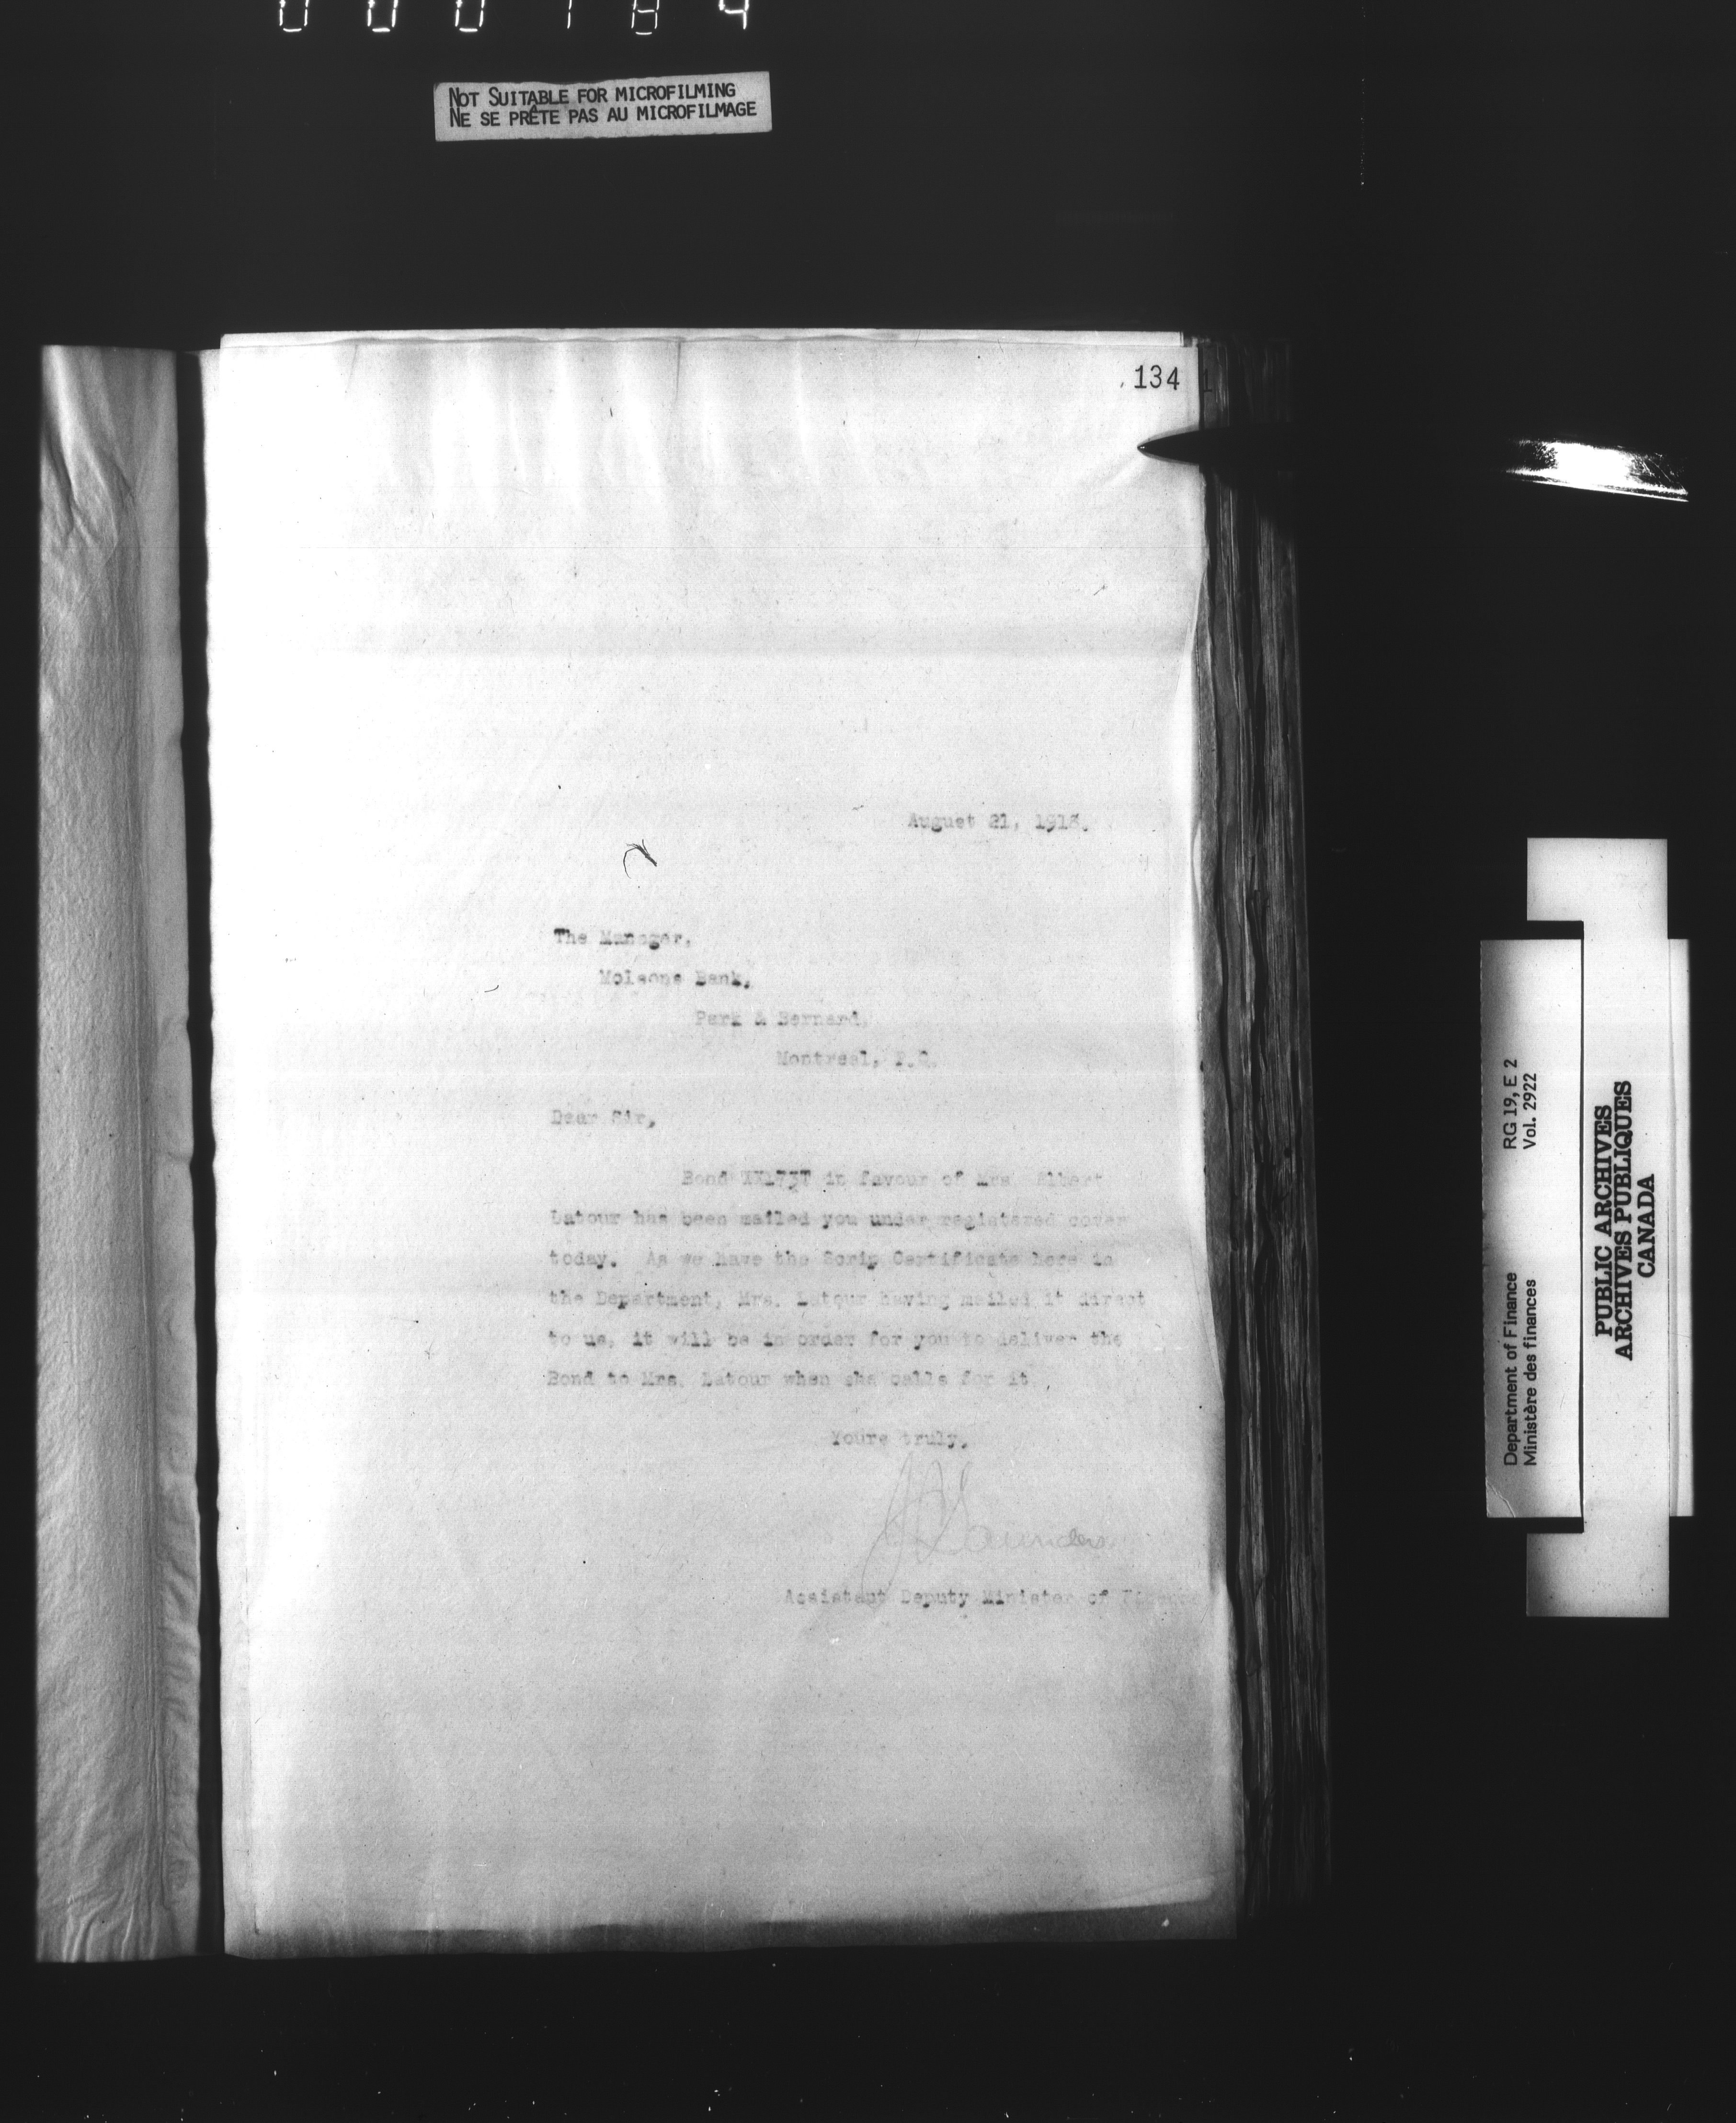 000184
NOT SUITABLE FOR MICROFILMING
NE SE PRÊTE PAS AU MICROFILMAGE
134
August 21, 1918.
The Manager,
Molsons Bank,
Park & Bernard,
Montreal, P.Q.
Dear Sir,
Bond in favour of Mrs. Albert
Latour has been mailed you under registered cover
today. As we have the Scrip Certificate here in
the Department, Mrs. Latour having mailed it direct
to us, it will be in order for you to deliver the
Bond to Mrs. Latour when she calls for it.
Yours truly,
Saunders
Assistant Deputy Minister of
Department of Finance RG 19, E 2
Ministère des finances Vol. 2922
PUBLIC ARCHIVES
ARCHIVES PUBLIQUES
CANADA